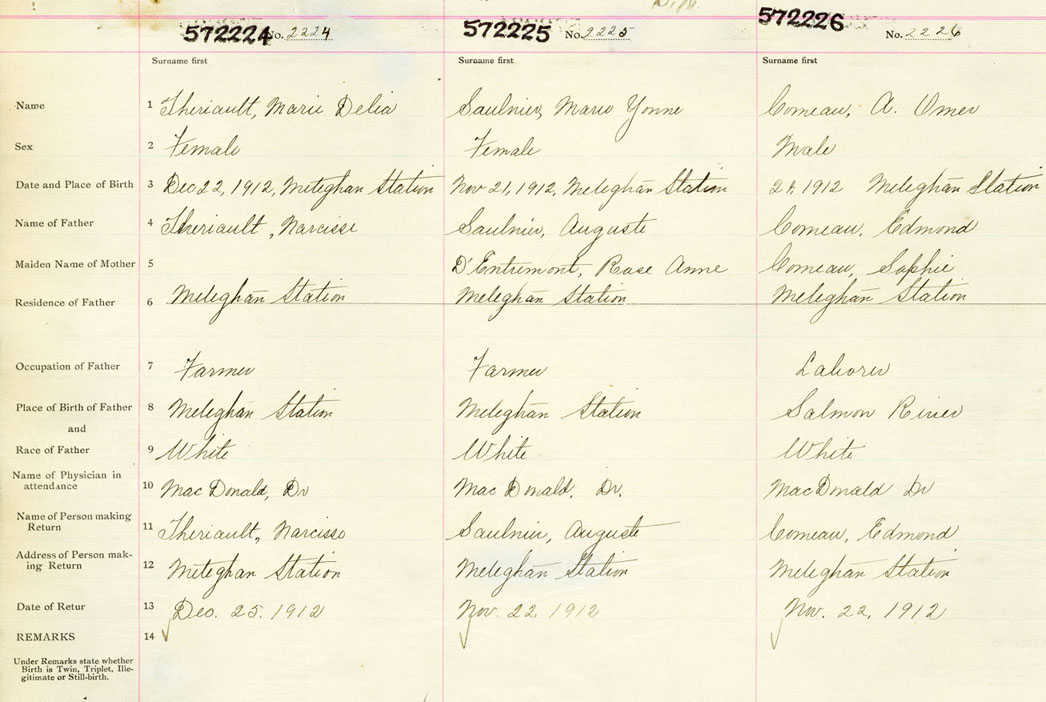 572224 No. 2224 572225 No. 2225 572226 No. 2226
Surname first Surname first Surname first
Name 1 Theriault, Marie Delia Saulnier, Marie Yonne Comeau, A. Omer
Sex 2 Female Female Male
Date and Place of Birth 3 Dec 22, 1912, Meteghan Station Nov 21, 1912, Meteghan Station 1912 Meteghan Station
Name of Father 4 Theriault, Narcisse Saulnier, Auguste Comeau, Edmond
Maiden Name of Mother 5 D'Entremont, Rose Anne Comeau, Sophie
Residence of Father 6 Meteghan Station Meteghan Station Meteghan Station
Occupation of Father 7 Farmer Farmer Laborer
Place of Birth of Father 8 Meteghan Station Meteghan Station Salmon River
and
Race of Father 9 White White White
Name of Physician in
attendance 10 MacDonald, Dr MacDonald, Dr. MacDonald Dr
Name of Person making
Return 11 Theriault, Narcisse Saulnier, Auguste Comeau, Edmond
Address of Person mak-
ing Return 12 Meteghan Station Meteghan Station Meteghan Station
Date of Retur 13 Dec. 25. 1912 Nov. 22. 1912 Nov. 22, 1912
REMARKS 14
Under Remarks state whether
Birth is Twin, Triplet, Ille-
gitimate or Still-birth.